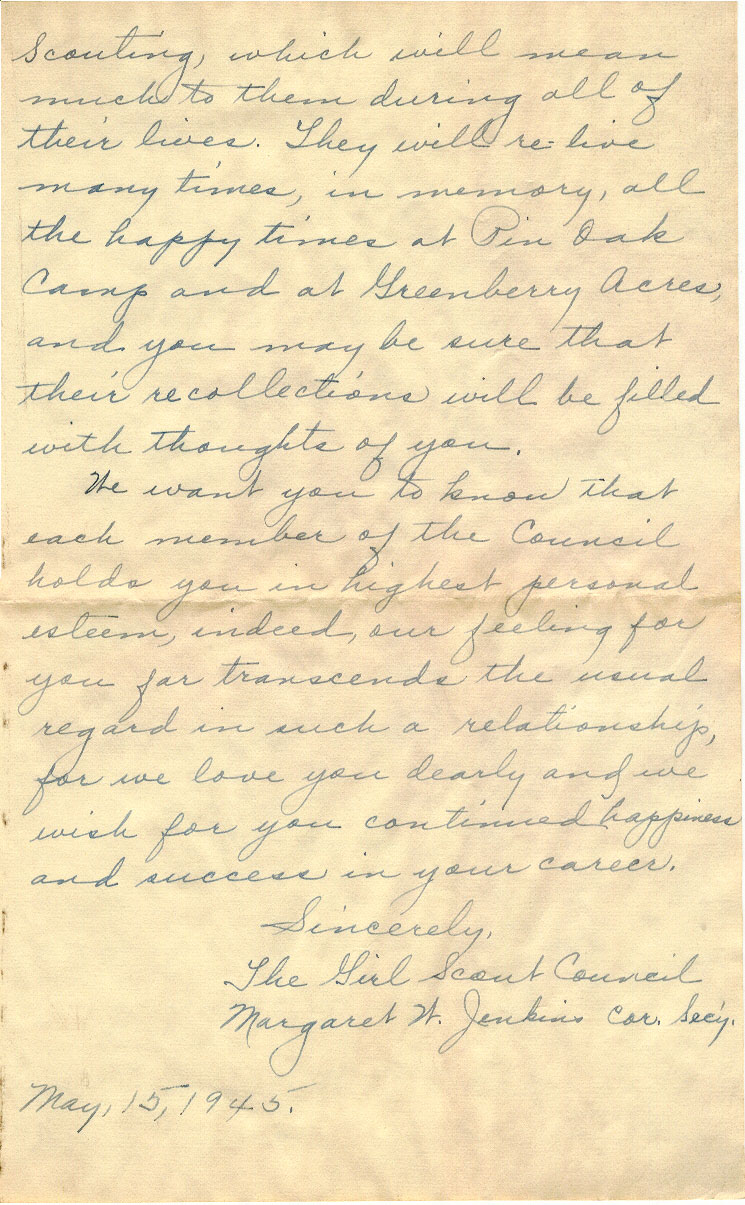 Scouting, which will mean
much to them during all of
their lives. They will re-live
many times, in memory, all
the happy times at Pin Oak
Camp and at Greenberry Acres,
and you may be sure that
their recollections will be filled
with thoughts of you.
We want you to know that
each member of the Council
holds you in highest personal
esteem, indeed, our feeling for
you far transcends the usual
regard in such a relationship,
for we love you dearly and we
wish for you continued happiness
and success in your career.
Sincerely,
The Girl Scout Council
Margaret W. Jenkins Cor. Sec'y.
May, 15, 1945.